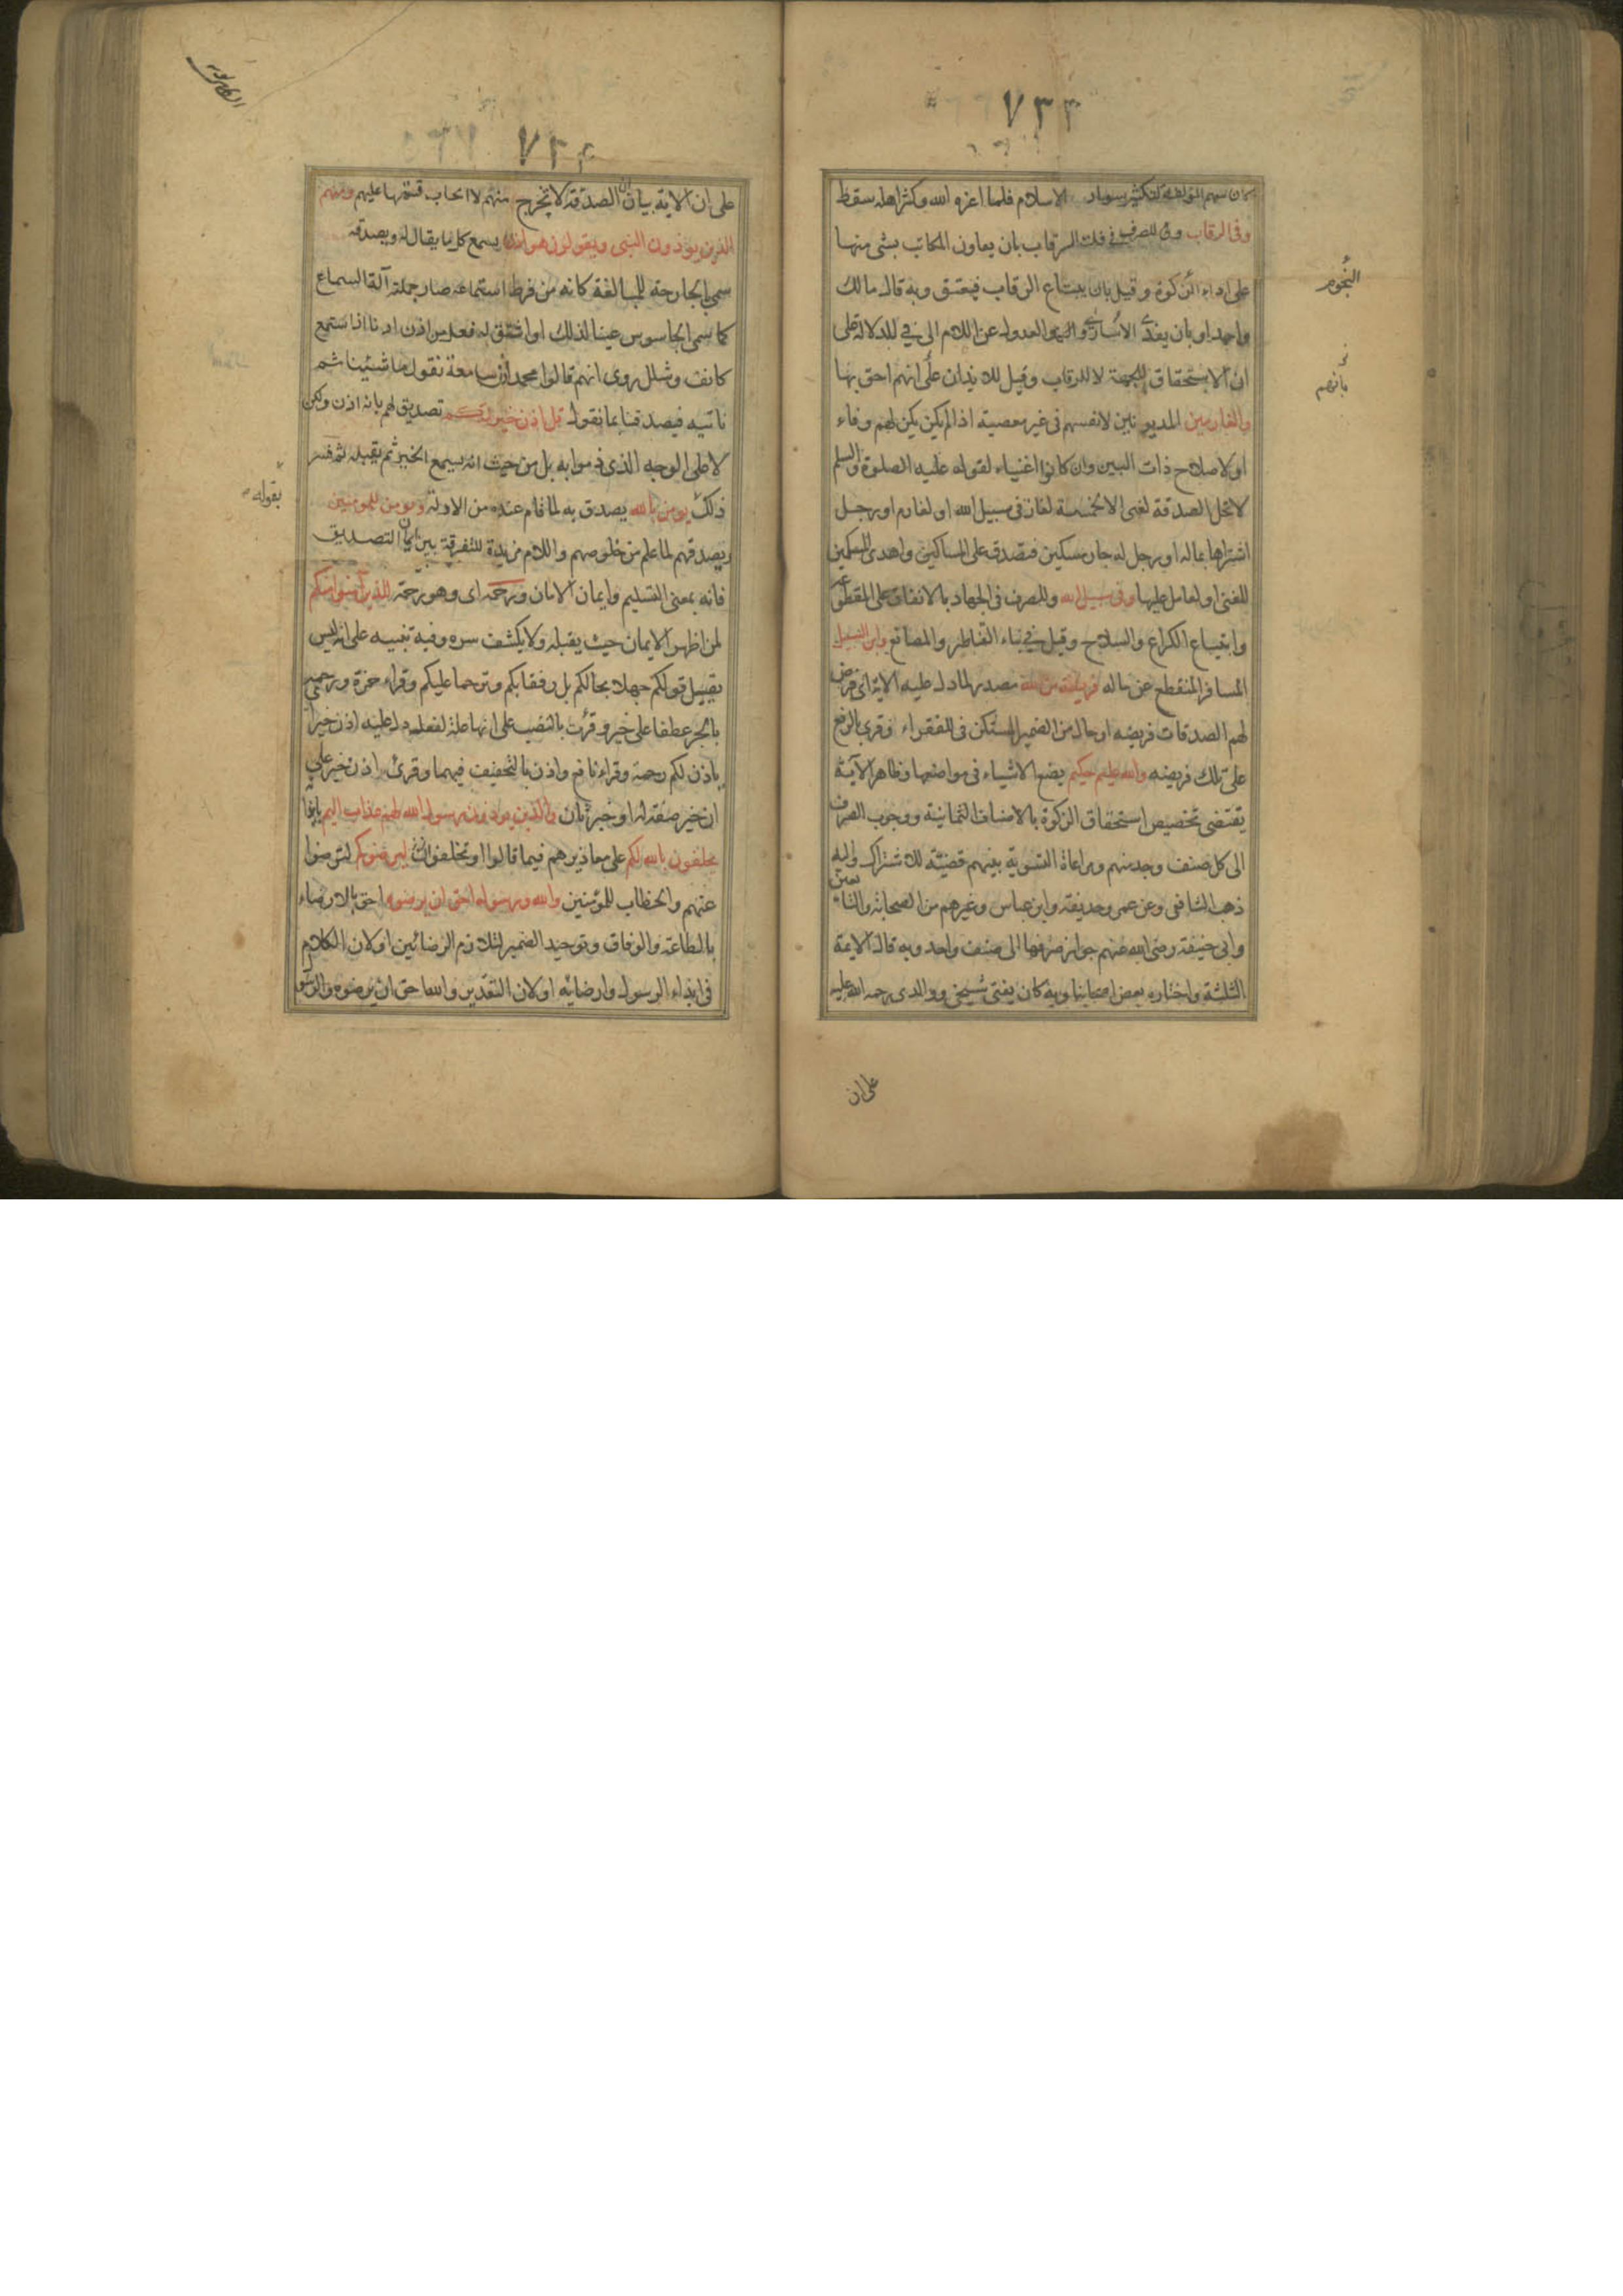 ٧٣٣
كان سهم المؤلفة لتكثير سواد الاسلام فلما اعزه الله وكثر اهله سقط
وفى الرقاب وللصرف فى فك الرقاب بان يعاون المكاتب بشى منها
على اداء الزكوة وقيل بان يبتاع الرقاب فيعتق وبه قال مالك
النجوم
واحمد او بان يفدى الاسارى والعدول عن اللام الى فى للدلالة على
ان الاستحقاق للجهة لا للرقاب وقيل للايذان على انهم احق بها
بانهم
والغارمين المديونين لانفسهم فى غير معصية اذا لم يكن يكن لهم وفاء
او لاصلاح ذات البين وان كانوا اغنياء لقوله عليه الصلوة والسلم
لا تحل الصدقة لغنى الا لخمسة لغاز فى سبيل الله او لغارم او رجل
اشتراها بماله او رجل له جار مسكين فتصدق على المساكين واهدى المسكين
للغنى او لعامل عليها وفى سبيل الله وللصرف فى الجهاد بالانفاق على المتطوعة
وابتياع الكراع والسلاح وقيل فى بناء القناطر والمصانع وابن السبيل
المسافر المنقطع عن ماله فريضة من الله مصدر لما دل عليه الاية اى فرض
لهم الصدقات فريضه او حال من الضمير المستكن فى للفقراء وقرى بالرفع
على تلك فريضه والله عليم حكيم يضع الاشياء فى مواضعها وظاهر الآية
يقتضى تخصيص استحقاق الزكوة بالاصناف الثمانية ووجوب الصرف
الى كل صنف وجد منهم ومراعاة التسوية بينهم قضيّة للاشتراك واليه
ذهب الشافعى وعن عمر وحذيفة وابن عباس وغيرهم من الصحابة والتابعين
وابى حنيفة رضى الله عنهم جواز صرفها الى صنف واحد وبه قال الايمة
الثلثة واختاره بعض اصحابنا وبه كان يفتى شيخى ووالدى رحمه الله عليه
على ان
٧٣٤
على ان الاية بيان ان الصدقة لا تخرج منهم لا ايجاب قسمتها عليهم ومنهم
الذين يوذون النبى ويقولون هو اذن يسمع كل ما يقال له ويصدقه
سمى بالجارحة للمبالغة كانه من فرط استماعه صار جملته آلة السماع
كما سمى الجاسوس عينا لذلك او اشتق له فعل من اذن اذنا اذا استمع
كانف وشلل روى انهم قالوا محمد اذن سامعة نقول ما شئينا ثم
ناتيه فيصدقنا بما نقول قل اذن خير لكم تصديق لهم بانه اذن ولكن
لا على الوجه الذى ذموا به بل من حيث انه يسمع الخير ثم يقبله ثم فسر
ذلك يومن بالله يصدق به لما قام عنده من الادلة ويومن للمومنين
بقوله
ويصدقهم لما علم من خلوصهم واللام مزيدة للتفرقة بين ايمان التصديق
فانه بمعنى التسليم وايمان الامان ورحمة اى وهو رحمة للذين آمنوا منكم
لمن اظهر الايمان حيث يقبله ولا يكشف سره وفيه تنبيه على انه ليس
يقبل قولكم جهلا بحالكم بل رفقا بكم وترحما عليكم وقراء حمزة ورحمة
بالجر عطفا على خير وقرئت بالنصب على انها علة لفعل دل عليه اذن خير اى
ياذن لكم رحمة وقراء نافع واذن بالتخفيف فيهما وقرئ اذن خير على
ان خير صفة له او خبر ثان والذين يوذون رسول الله لهم عذاب اليم بايذا
يحلفون بالله لكم على معاذيرهم فيما قالوا او تخلفوا ليرضوكم لترضوا
عنهم والخطاب للمؤمنين والله ورسوله احق ان يرضوه احق بالارضاء
بالطاعة والوفاق وتوحيد الضمير لتلازم الرضائين او لان الكلام
فى ايذاء الرسول وارضائه او لان التقدير والله احق ان يرضوه والرسول